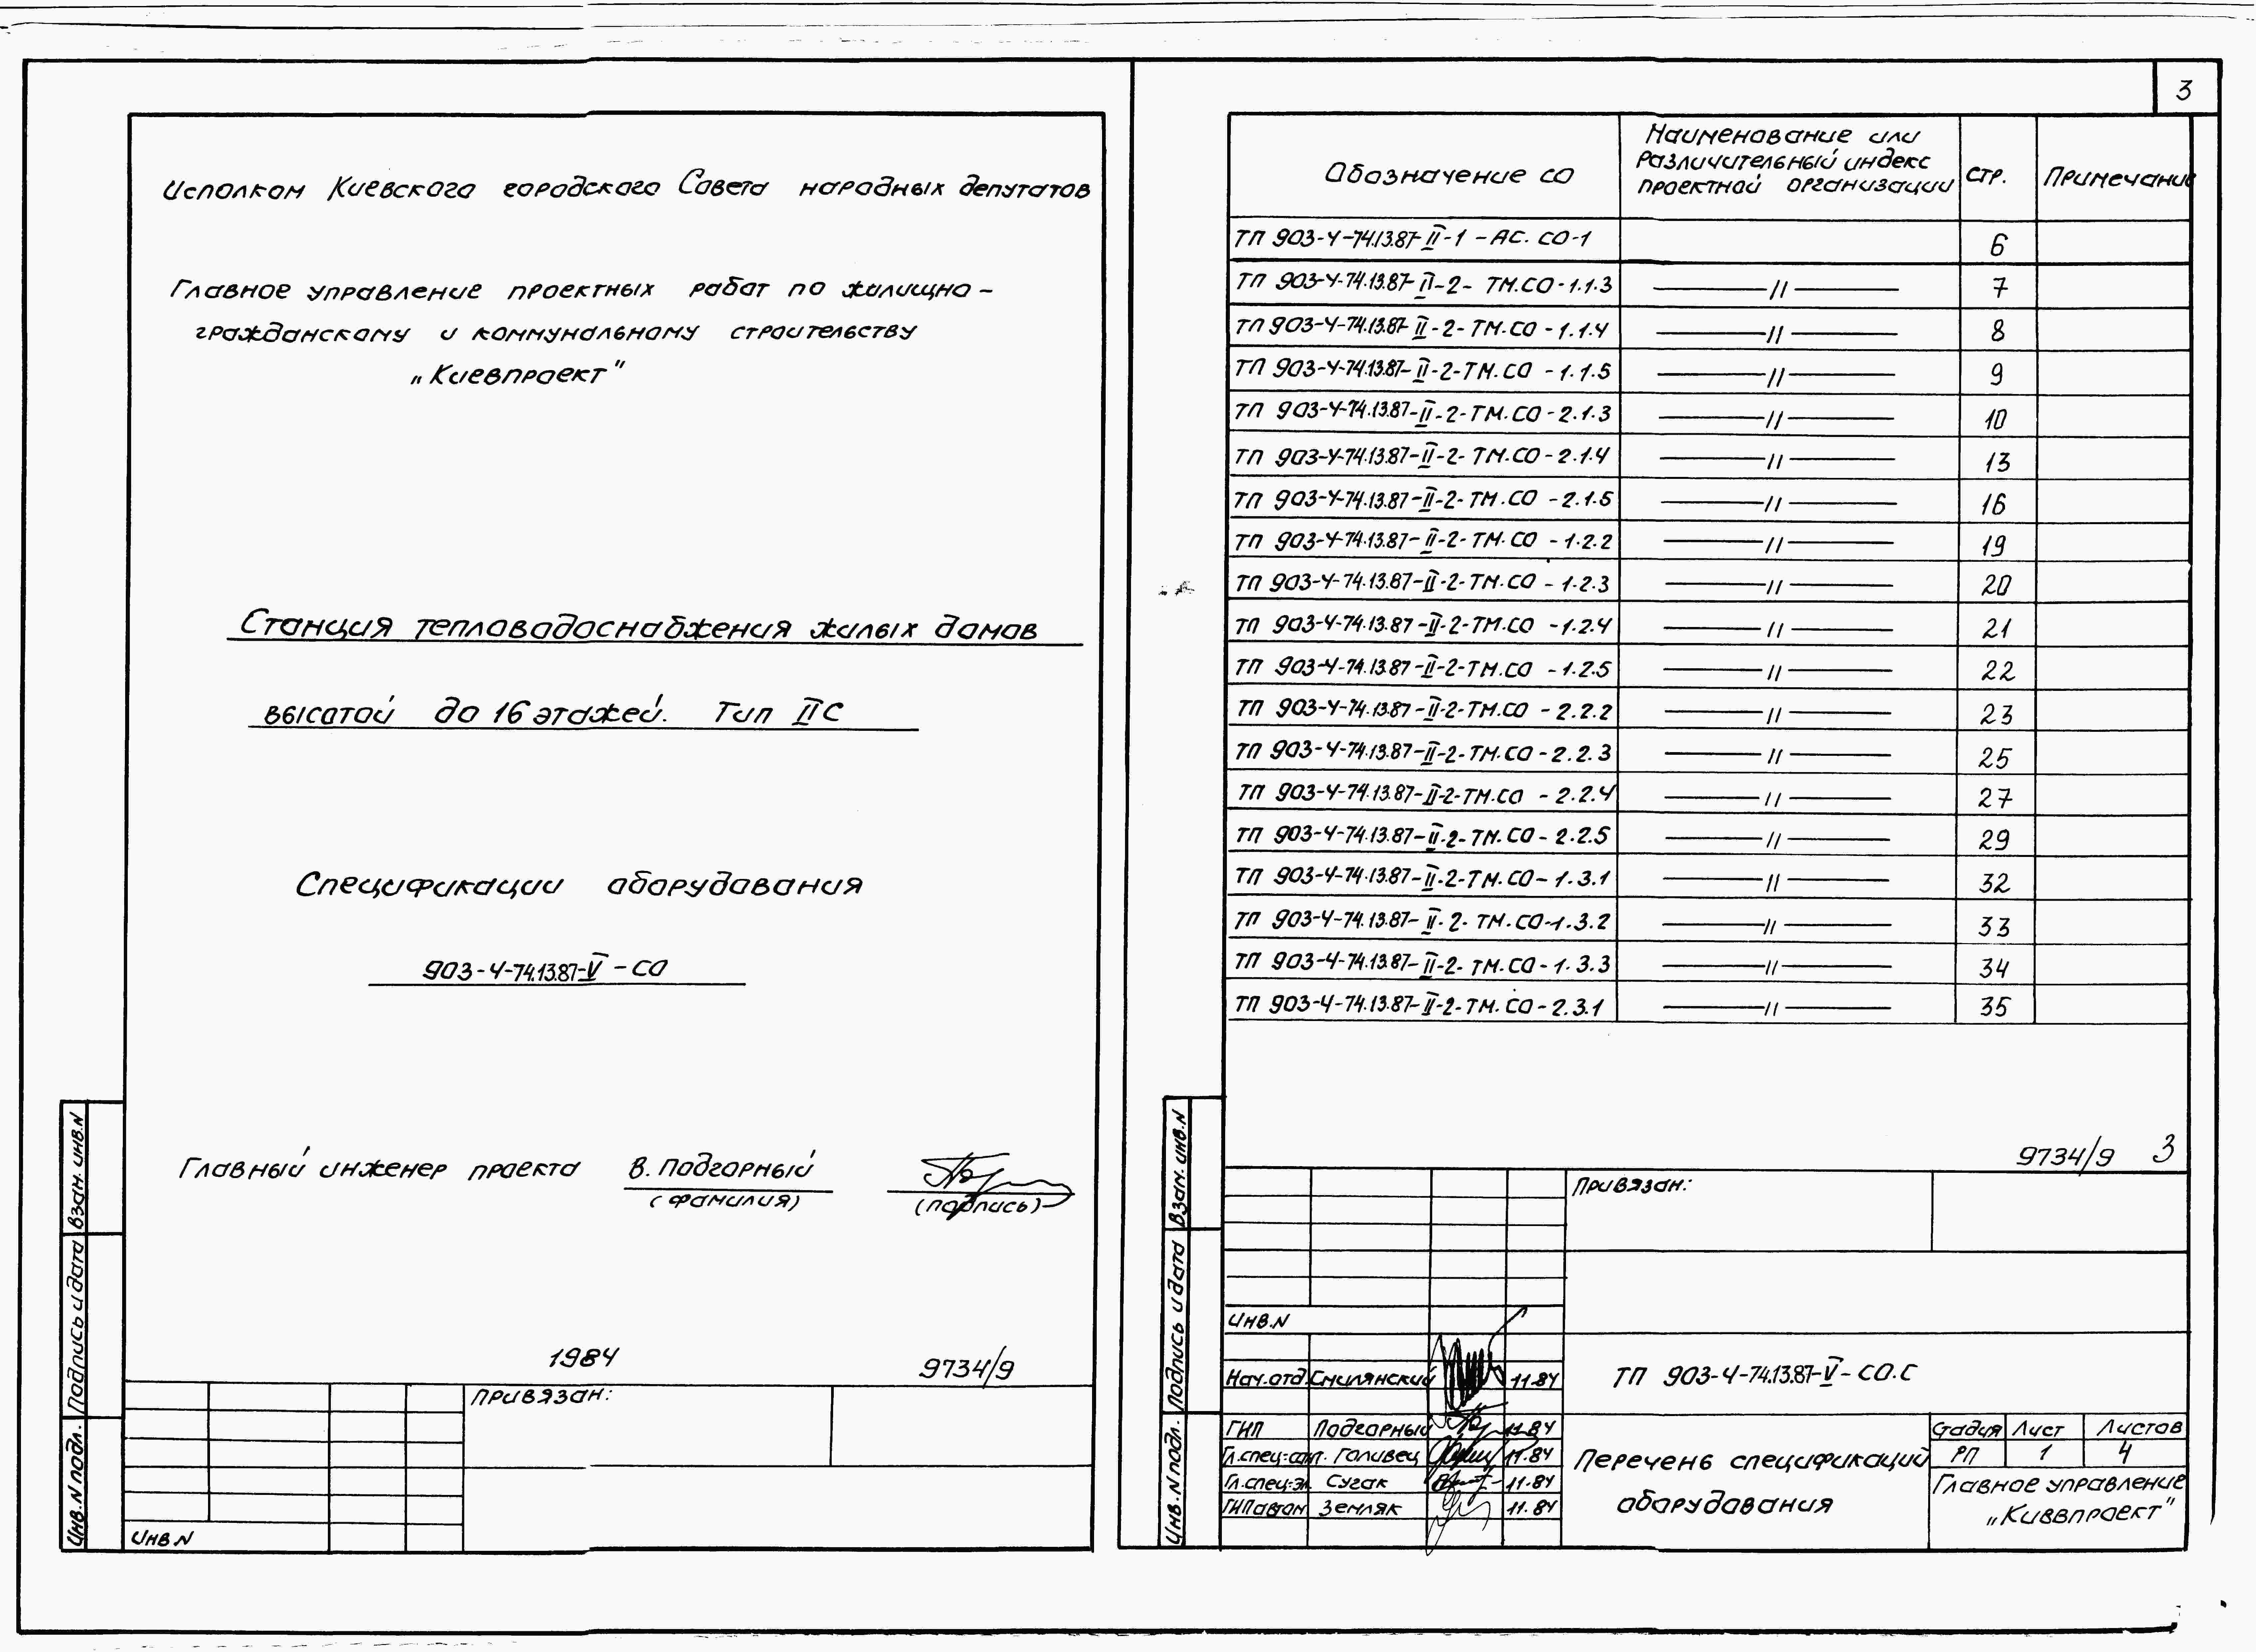 Исполком Киевского городского Совета народных депутатов
Главное управление проектных работ по жилищно-
гражданскому и коммунальному строительству
„Киевпроект"
Станция тепловодоснабжения жилых домов
высотой до 16 этажей. Тип IIC
Спецификации оборудования
903-4-74.13.87-V-СО
Главный инженер проекта В. Подгорный
(фамилия) (подпись)
1984 9734/9
Привязан:
Инв.N
Взам. инв.N
Подпись и дата
Инв.N подл.
3
Обозначение СО Наименование или различительный индекс проектной организации Стр. Примечание
ТП 903-4-74.13.87-II-1-АС.СО-1 6
ТП 903-4-74.13.87-II-2-ТМ.СО-1.1.3 —//— 7
ТП 903-4-74.13.87-II-2-ТМ.СО-1.1.4 —//— 8
ТП 903-4-74.13.87-II-2-ТМ.СО-1.1.5 —//— 9
ТП 903-4-74.13.87-II-2-ТМ.СО-2.1.3 —//— 10
ТП 903-4-74.13.87-II-2-ТМ.СО-2.1.4 —//— 13
ТП 903-4-74.13.87-II-2-ТМ.СО-2.1.5 —//— 16
ТП 903-4-74.13.87-II-2-ТМ.СО-1.2.2 —//— 19
ТП 903-4-74.13.87-II-2-ТМ.СО-1.2.3 —//— 20
ТП 903-4-74.13.87-II-2-ТМ.СО-1.2.4 —//— 21
ТП 903-4-74.13.87-II-2-ТМ.СО-1.2.5 —//— 22
ТП 903-4-74.13.87-II-2-ТМ.СО-2.2.2 —//— 23
ТП 903-4-74.13.87-II-2-ТМ.СО-2.2.3 —//— 25
ТП 903-4-74.13.87-II-2-ТМ.СО-2.2.4 —//— 27
ТП 903-4-74.13.87-II-2-ТМ.СО-2.2.5 —//— 29
ТП 903-4-74.13.87-II-2-ТМ.СО-1.3.1 —//— 32
ТП 903-4-74.13.87-II-2-ТМ.СО-1.3.2 —//— 33
ТП 903-4-74.13.87-II-2-ТМ.СО-1.3.3 —//— 34
ТП 903-4-74.13.87-II-2-ТМ.СО-2.3.1 —//— 35
9734/9 3
Привязан:
Инв.N
Нач.отд. Смилянский 11.84
ТП 903-4-74.13.87-V-СО.С
ГИП Подгорный 11.84
Гл.спец. Голивец 11.84
Гл.спец.эл. Сугак 11.84
ГИПавтом Земляк 11.84
Перечень спецификаций
оборудования
Стадия Лист Листов
РП 1 4
Главное управление
„Киевпроект"
Взам. инв.N
Подпись и дата
Инв.N подл.